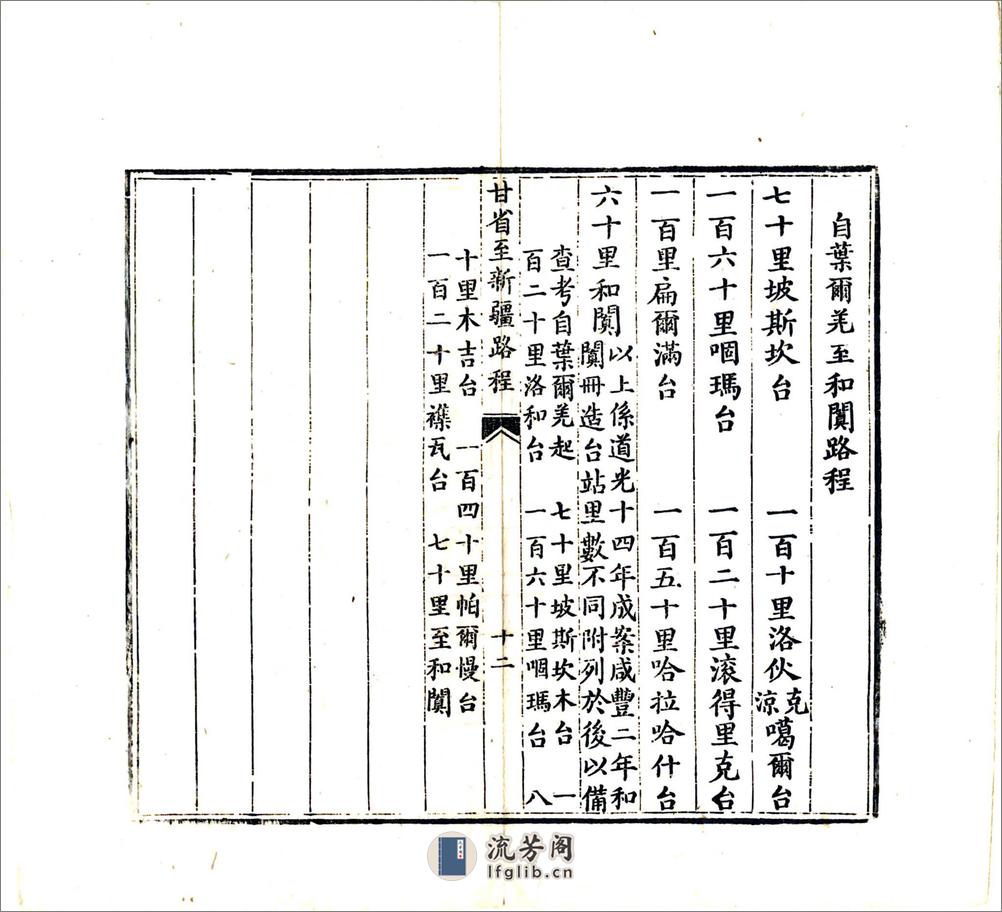 自葉爾羌至和闐路程
七十里坡斯坎台　一百十里洛伙克涼噶爾台
一百六十里啯瑪台　一百二十里滾得里克台
一百里扁爾滿台　一百五十里哈拉哈什台
六十里和闐
以上係道光十四年成案咸豐二年和
闐冊造台站里數不同附列於後以備
查考自葉爾羌起　七十里坡斯坎木台　一
百二十里洛和台　一百六十里啯瑪台　八
甘省至新疆路程　十二
十里木吉台　一百四十里帕爾慢台
一百二十里襍瓦台　七十里至和闐
流芳阁
lfglib.cn